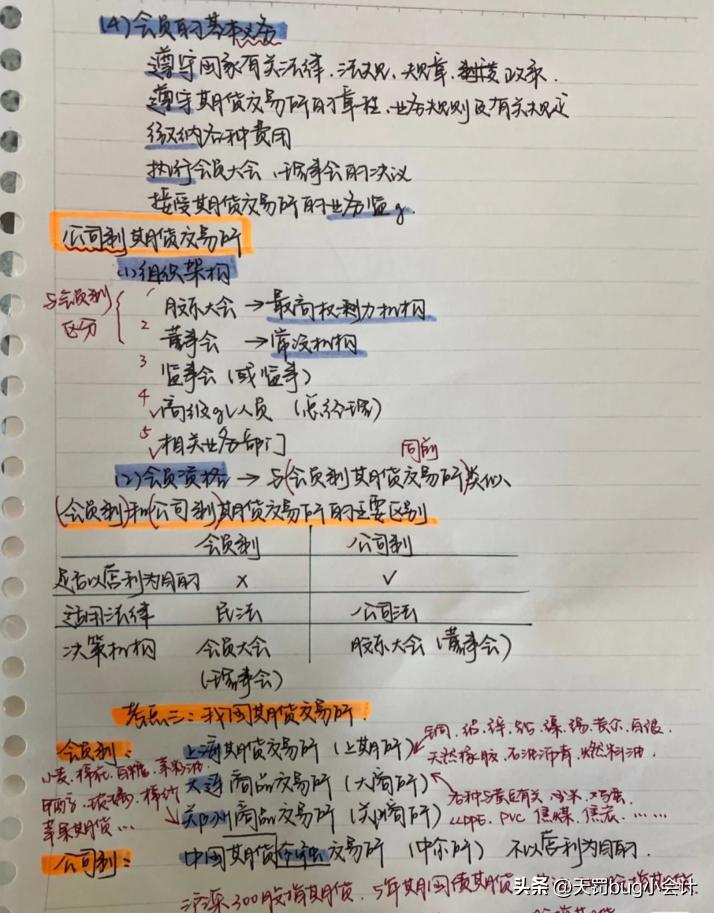 (4)会员的基本义务
遵守国家有关法律、法规、规章和政策.
遵守期货交易所的章程、业务规则及有关规定
缴纳各种费用
执行会员大会、理事会的决议
接受期货交易所的业务监g.
公司制期货交易所
(1)组织架构
与会员制
区分
1 股东大会 → 最高权力机构
2 董事会 → 常设机构
3 监事会(或监事)
4 高级gl人员 (总经理)
5 相关业务部门
同前
(2)会员资格 → 与(会员制期货交易所)类似
(会员制)和(公司制)期货交易所的主要区别
会员制 公司制
是否以营利为目的 × ✓
适用法律 民法 公司法
决策机构 会员大会 股东大会(董事会)
(理事会)
考点三:我国期货交易所.
铜、铝、锌、铅、镍、锡、黄金、白银
会员制: 上海期货交易所(上期所)
天然橡胶、石油沥青、燃料油.
小麦、棉花、白糖、菜籽油
大连商品交易所(大商所)
各种与黄豆有关、玉米、鸡蛋
甲醇、玻璃、棉纱
郑州商品交易所(郑商所)
LLDPE、PVC、焦煤、焦炭、……
苹果期货…
公司制: 中国期货金融交易所(中金所) 不以营利为目的.
沪深300股指期货、5年期国债期货
头条@天罚bug小会计